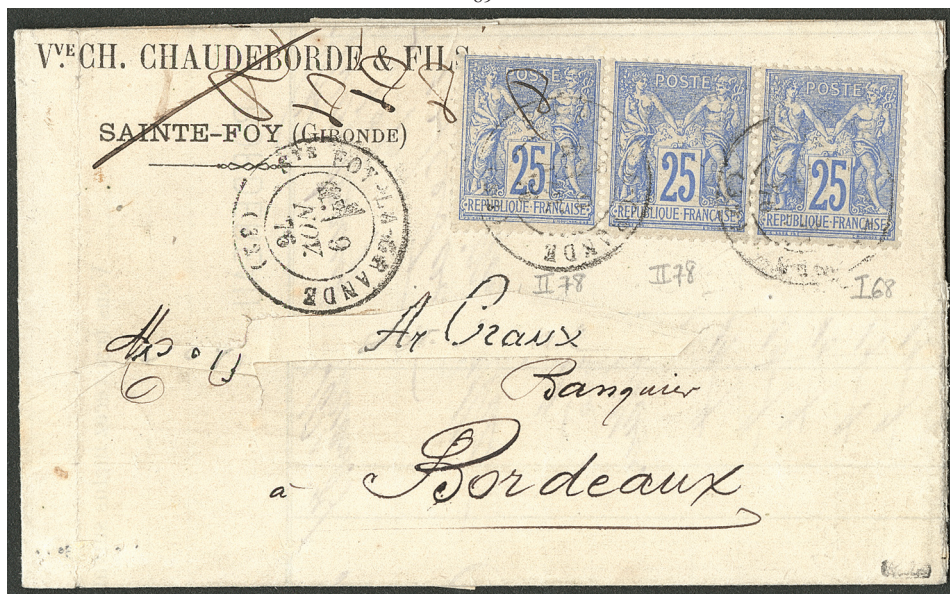 69
VVE CH. CHAUDEBORDE & FILS
SAINTE-FOY (GIRONDE)
POSTE
25
REPUBLIQUE FRANCAISE
POSTE
25
REPUBLIQUE FRANCAISE
POSTE
25
REPUBLIQUE FRANCAISE
STE FOY-LA-GRANDE
9
NOV
78
(32)
ANDE
II 78
II 78
I 68
Ar Craux
Banquier
à Bordeaux